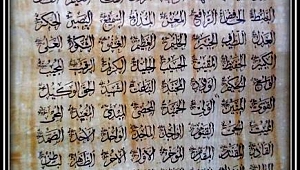 الباسط الخافض الرافع المعز المذل السميع البصير الحكم
العدل اللطيف الخبير الحليم العظيم الغفور الشكور العلي
الكبير الحفيظ المقيت الحسيب الجليل الكريم الرقيب المجيب
الواسع الحكيم الودود المجيد الباعث الشهيد الحق الوكيل
القوي المتين الولي الحميد المحصي المبدئ المعيد المحيي
المميت الحي القيوم الواجد الماجد الواحد الأحد الصمد
القادر المقتدر المقدم المؤخر الأول الآخر الظاهر الباطن